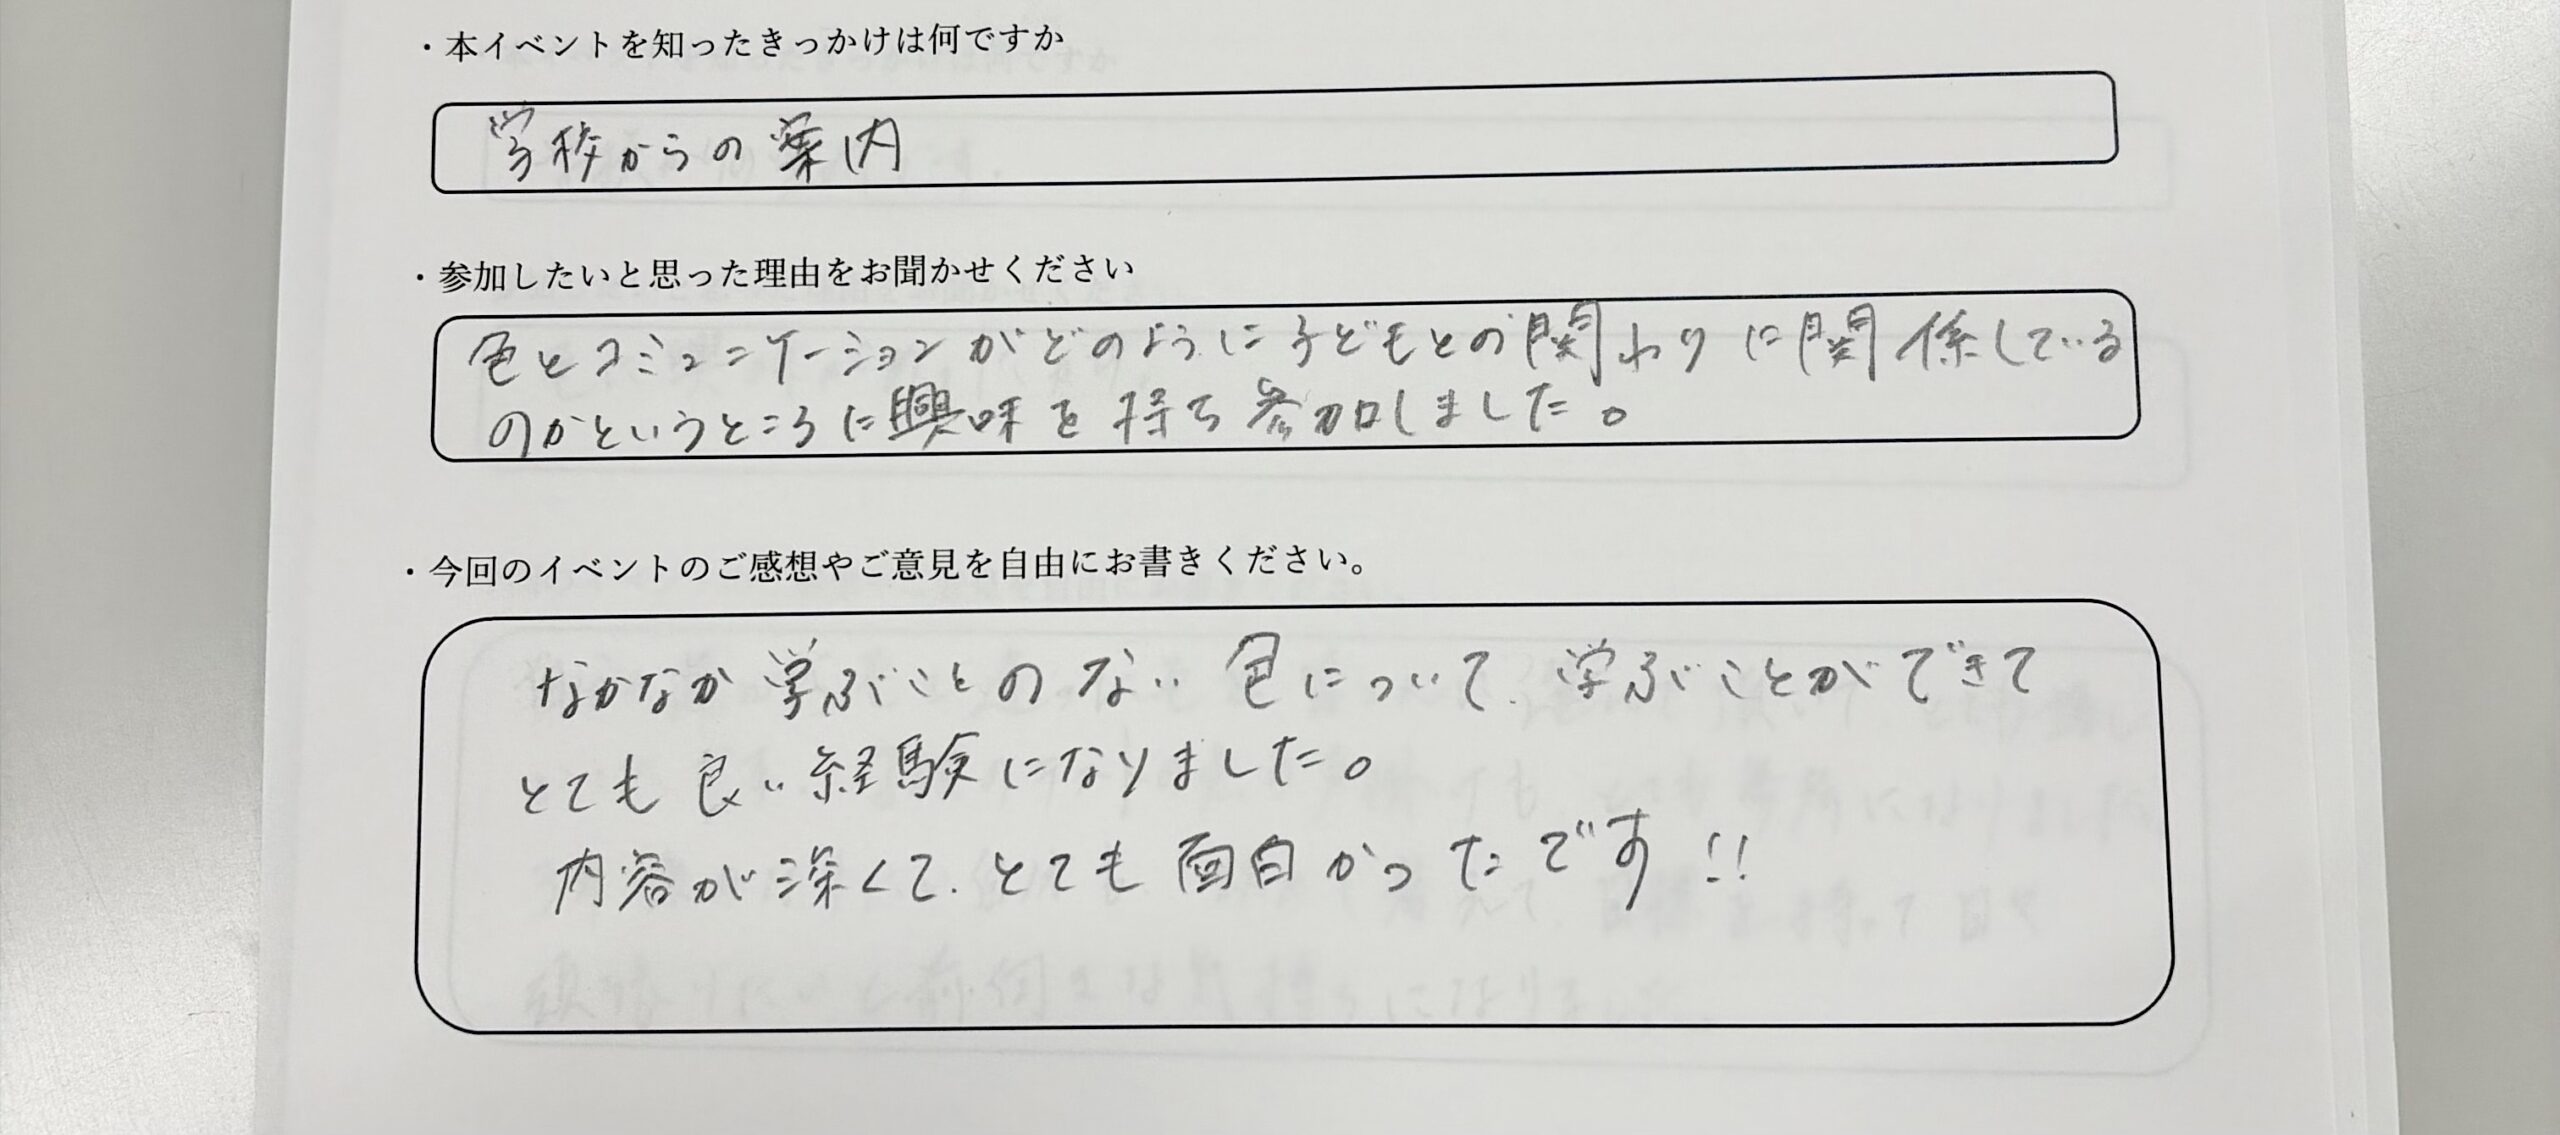 ・本イベントを知ったきっかけは何ですか
学校からの案内
・参加したいと思った理由をお聞かせください
色とコミュニケーションがどのように子どもとの関わりに関係している
のかというところに興味を持ち参加しました。
・今回のイベントのご感想やご意見を自由にお書きください。
なかなか学ぶことのない色について、学ぶことができて
とても良い経験になりました。
内容が深くて、とても面白かったです!!